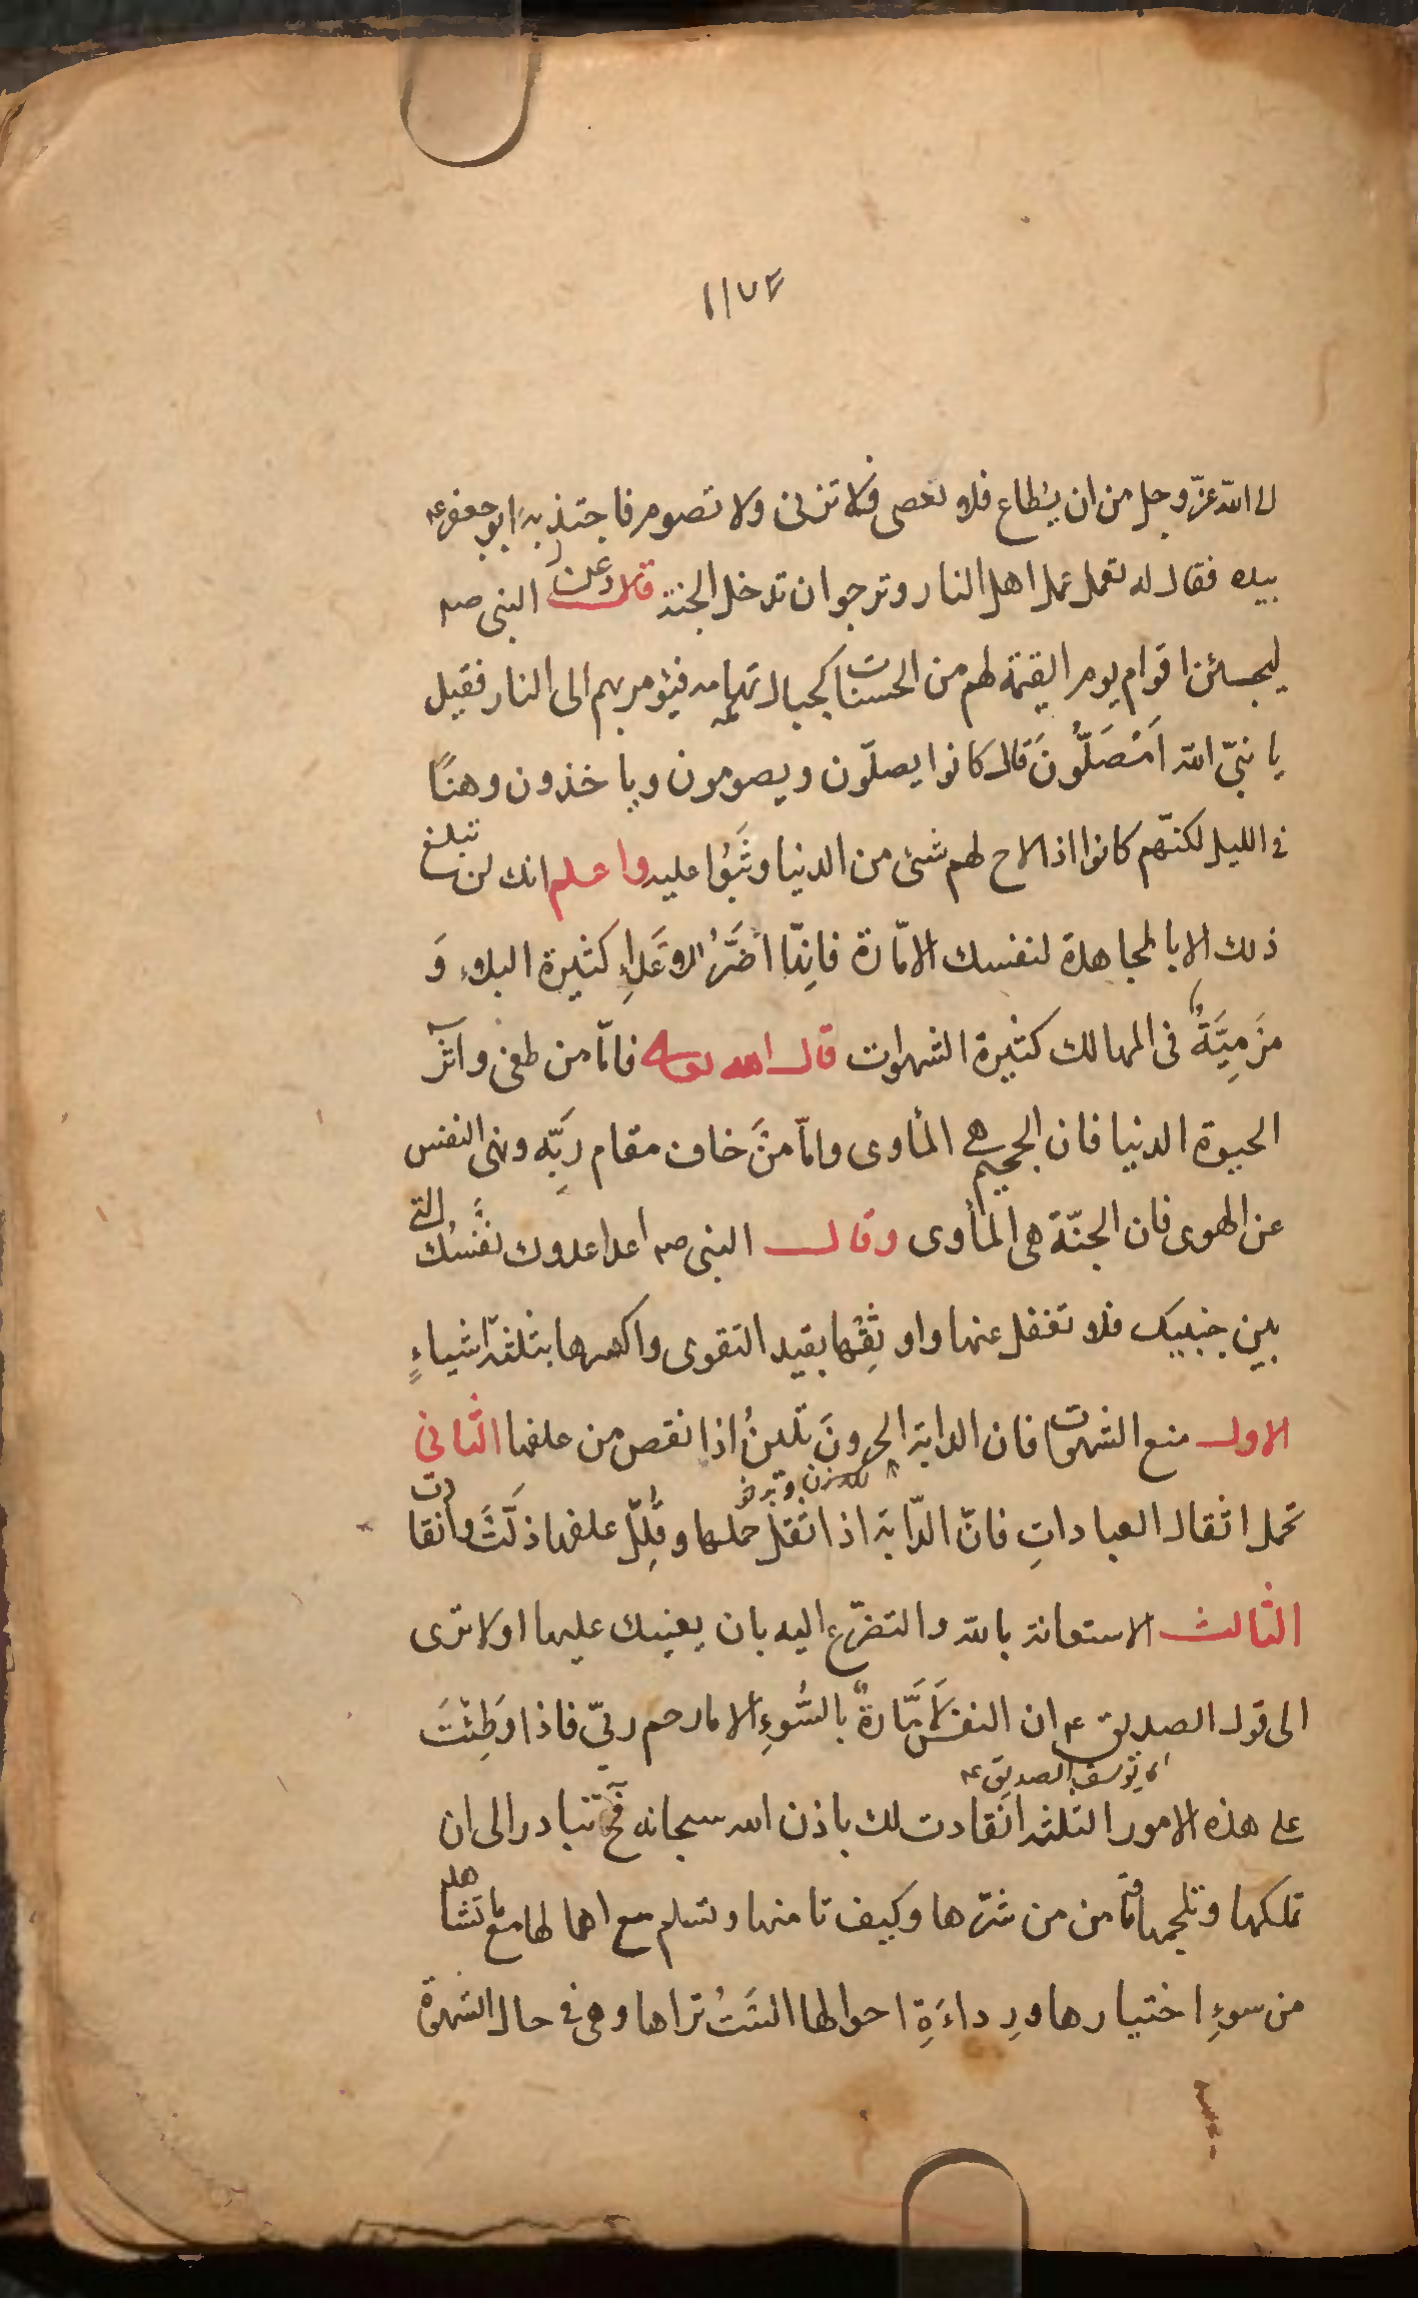 ١١٧٤
الى الله عزّ وجل من ان يطاع فلا يعصى فلا تزنى ولا تصوم فاجتذبه ابو جعفر ع
بيده فقال له تعمل عمل اهل النار وترجوا ان تدخل الجنة وعن النبى صه
ليجيئن اقوام يوم القيمة لهم من الحسنات كجبال تهامه فيؤمر بهم الى النار فقيل
يا نبىّ الله اَمُصَلُّونَ قال كانوا يصلّون ويصومون وياخذون وهنًا
فى الليل لكنّهم كانوا اذا لاح لهم شئ من الدنيا وثَبُوا عليه واعلم انك لن تبلغ
ذلك الا بالمجاهدة لنفسك الامّارة فانها اضَرُّ الاَعَداءِ كثيرة البلاء وَ
مَرْمِيَّةٌ فى المهالك كثيرة الشهوات قال الله تعالى فامّا من طغى واٰثر
الحيوة الدنيا فان الجحيم هى المأوى وامّا مَنْ خاف مقام ربِّه ونهى النفس
عن الهوى فان الجنّة هى المأوى وقال النبى صه اعدا عدوك نَفْسُكَ التى
بين جنبيك فلا تغفل عنها واوثِقْها بقيد التقوى واكسرها بثلثة اشياءٍ
الاول منع الشهوات فان الدابة الحرونَ تلينُ اذا نقص من علفها الثانى
تحمل اثقال العبادات فانّ الدّابة اذا اثقل حملها وقُلِّلَ علفها ذَلَّتْ وانقادت
الثالث الاستعانة بالله والتضرّع اليه بان يعينك عليها اولا ترى
الى قول الصديق ع ان النفس لَاَمَّارةٌ بالسُّوءِ الا ما رحم ربّى فاذا وَظِبْتَ
اى يوسف الصديق ع
على هذه الامور الثلثة انقادت لك باذن الله سبحانه فح تبادر الى ان
تملكها وتلجمها وتامن من شرّها وكيف تامنها وتسلم مع اهمالها مع ما تشاهد
من سوءِ اختيارها ورِداءَةِ احوالها الستُ تراها وهى فى حال الشهوة